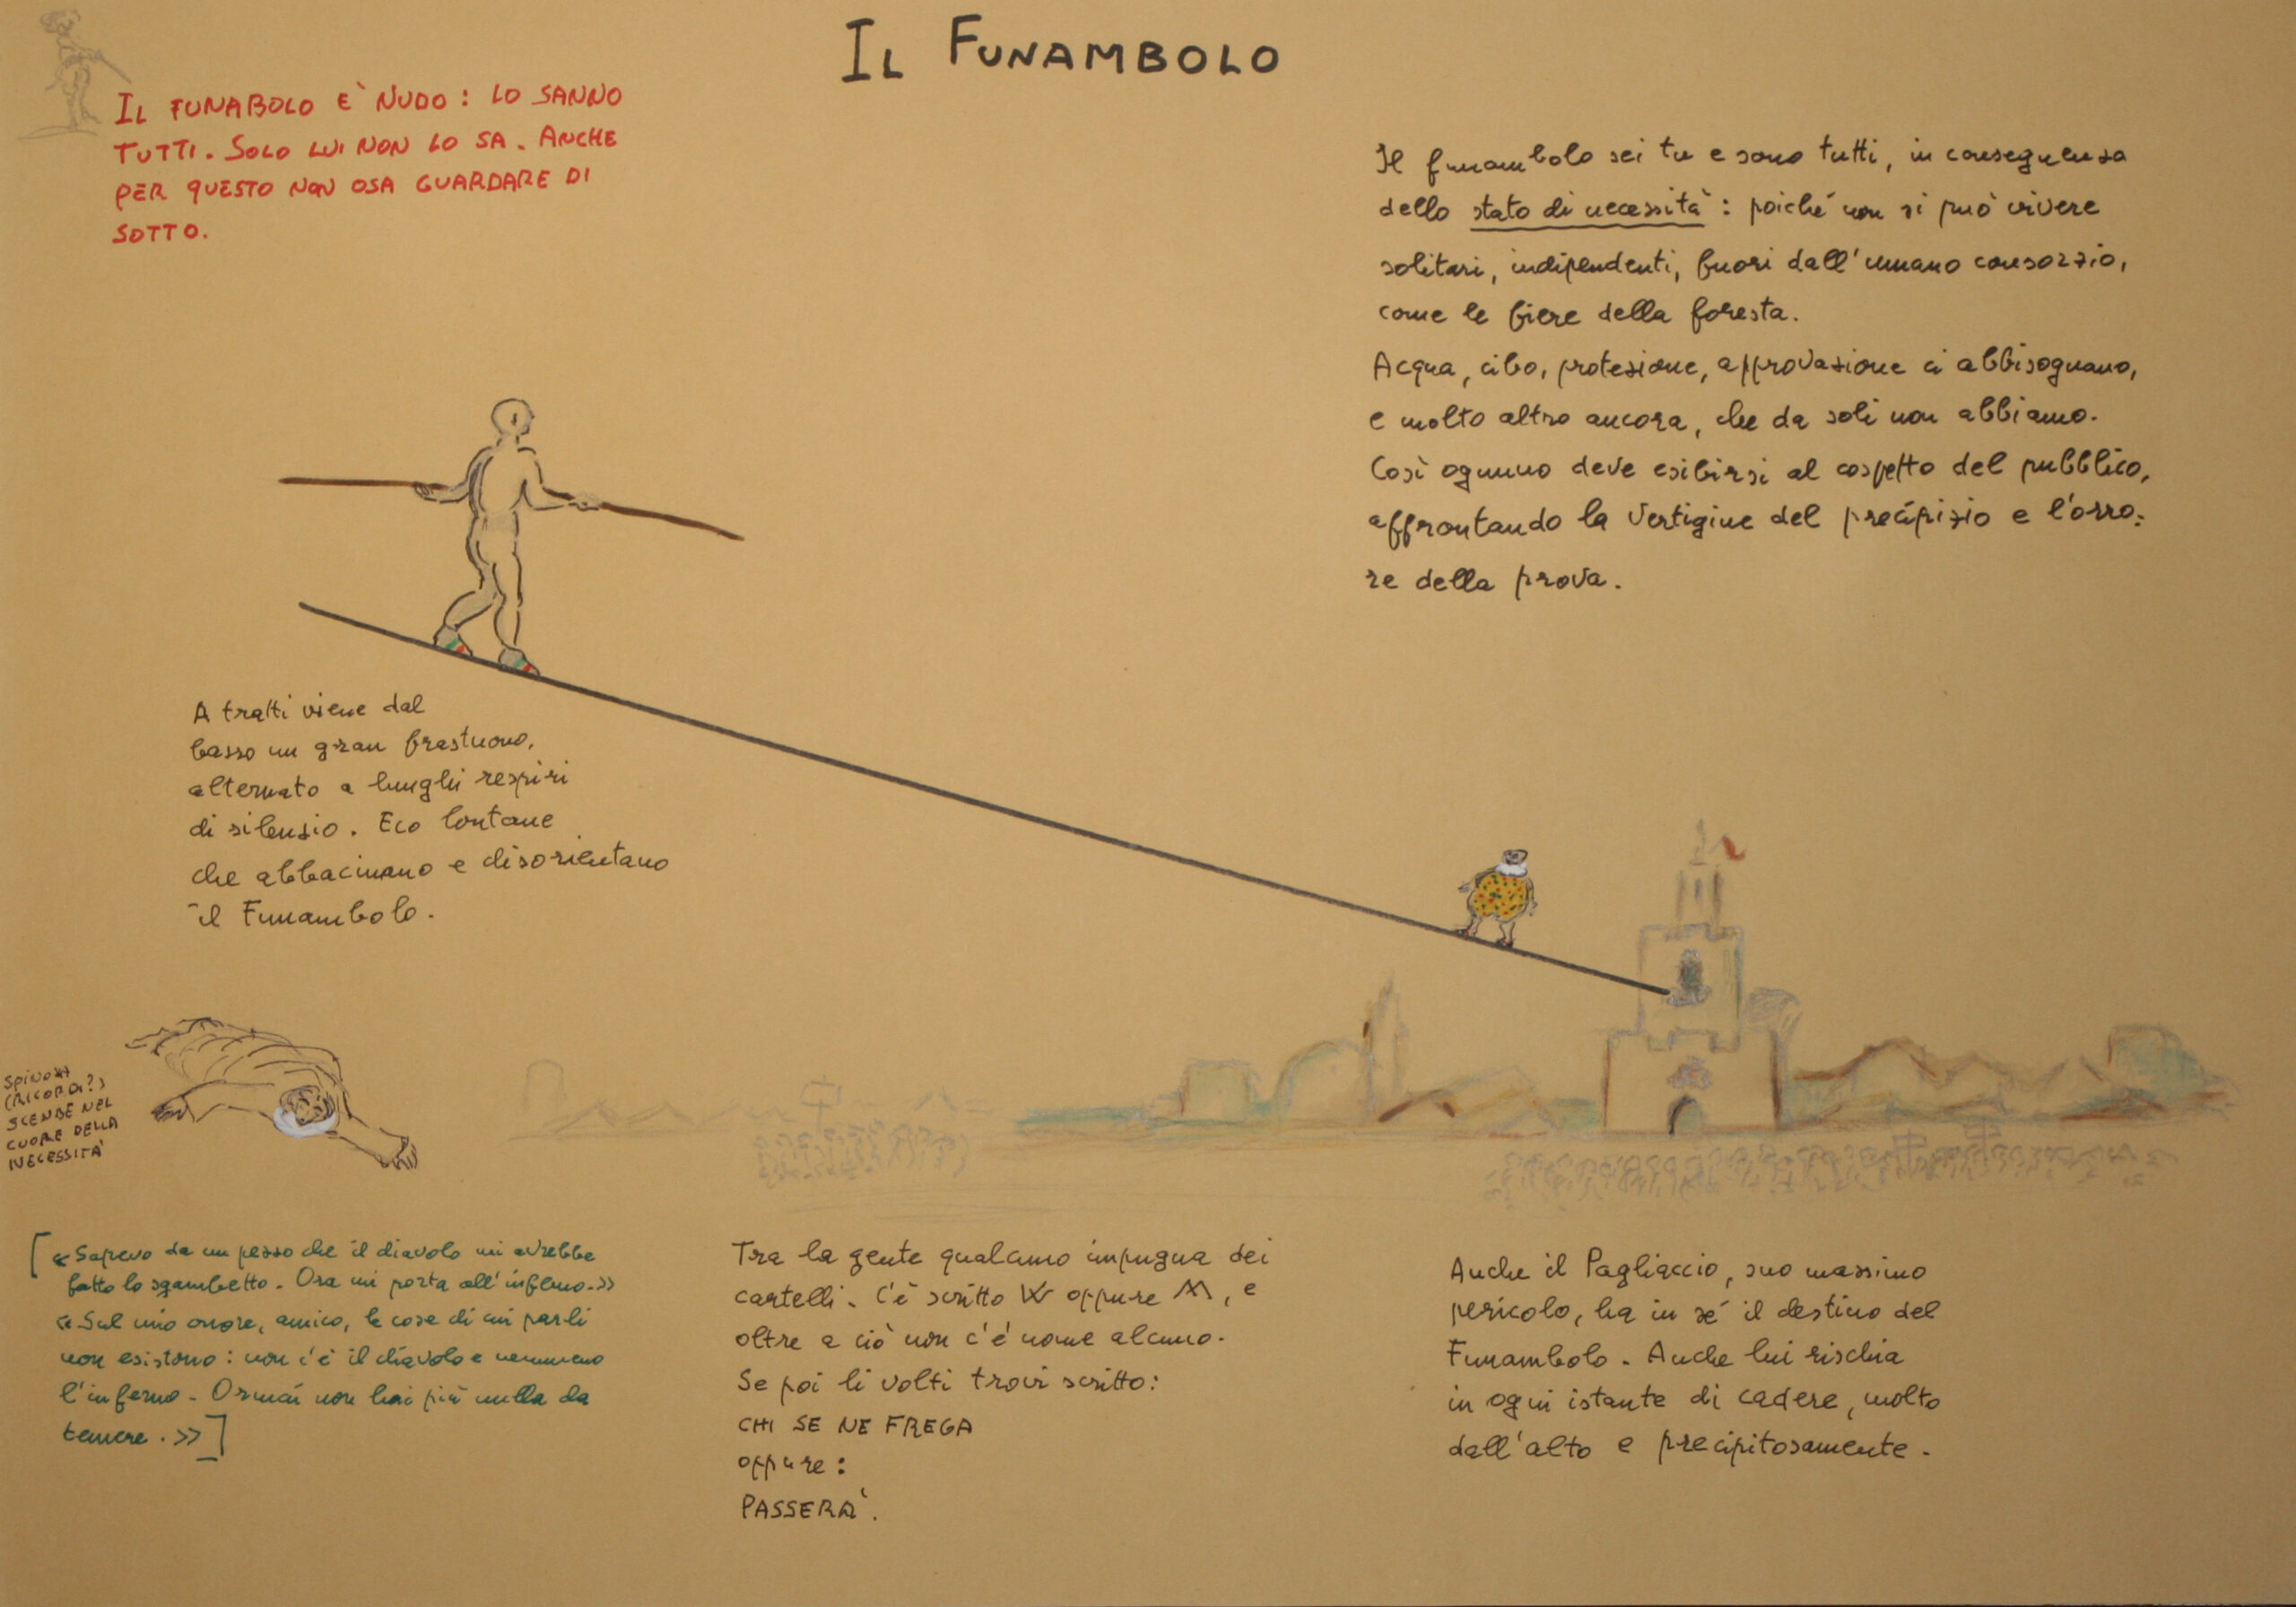 IL FUNAMBOLO
IL FUNABOLO E' NUDO: LO SANNO
TUTTI. SOLO LUI NON LO SA. ANCHE
PER QUESTO NON OSA GUARDARE DI
SOTTO.
Il funambolo sei tu e sono tutti, in conseguenza
dello stato di necessità: poiché non si può vivere
solitari, indipendenti, fuori dall'umano consorzio,
come le fiere della foresta.
Acqua, cibo, protezione, approvazione ci abbisognano,
e molto altro ancora, che da soli non abbiamo.
Così ognuno deve esibirsi al cospetto del pubblico,
affrontando la vertigine del precipizio e l'orro:
re della prova.
A tratti viene dal
basso un gran frastuono,
alternato a lunghi respiri
di silenzio. Eco lontane
che abbacinano e disorientano
il Funambolo.
(RICORDI?)
SCENDE NEL
CUORE DELLA
NECESSITÀ
[«Sapevo da un pezzo che il diavolo mi avrebbe
fatto lo sgambetto. Ora mi porta all'inferno.»
«Sul mio onore, amico, le cose di cui parli
non esistono: non c'è il diavolo e nemmeno
l'inferno. Ormai non hai più nulla da
temere.»]
Tra la gente qualcuno impugna dei
cartelli. C'è scritto W oppure M, e
oltre a ciò non c'è nome alcuno.
Se poi li volti trovi scritto:
CHI SE NE FREGA
oppure:
PASSERÀ.
Anche il Pagliaccio, suo massimo
pericolo, ha in sé il destino del
Funambolo. Anche lui rischia
in ogni istante di cadere, molto
dall'alto e precipitosamente.